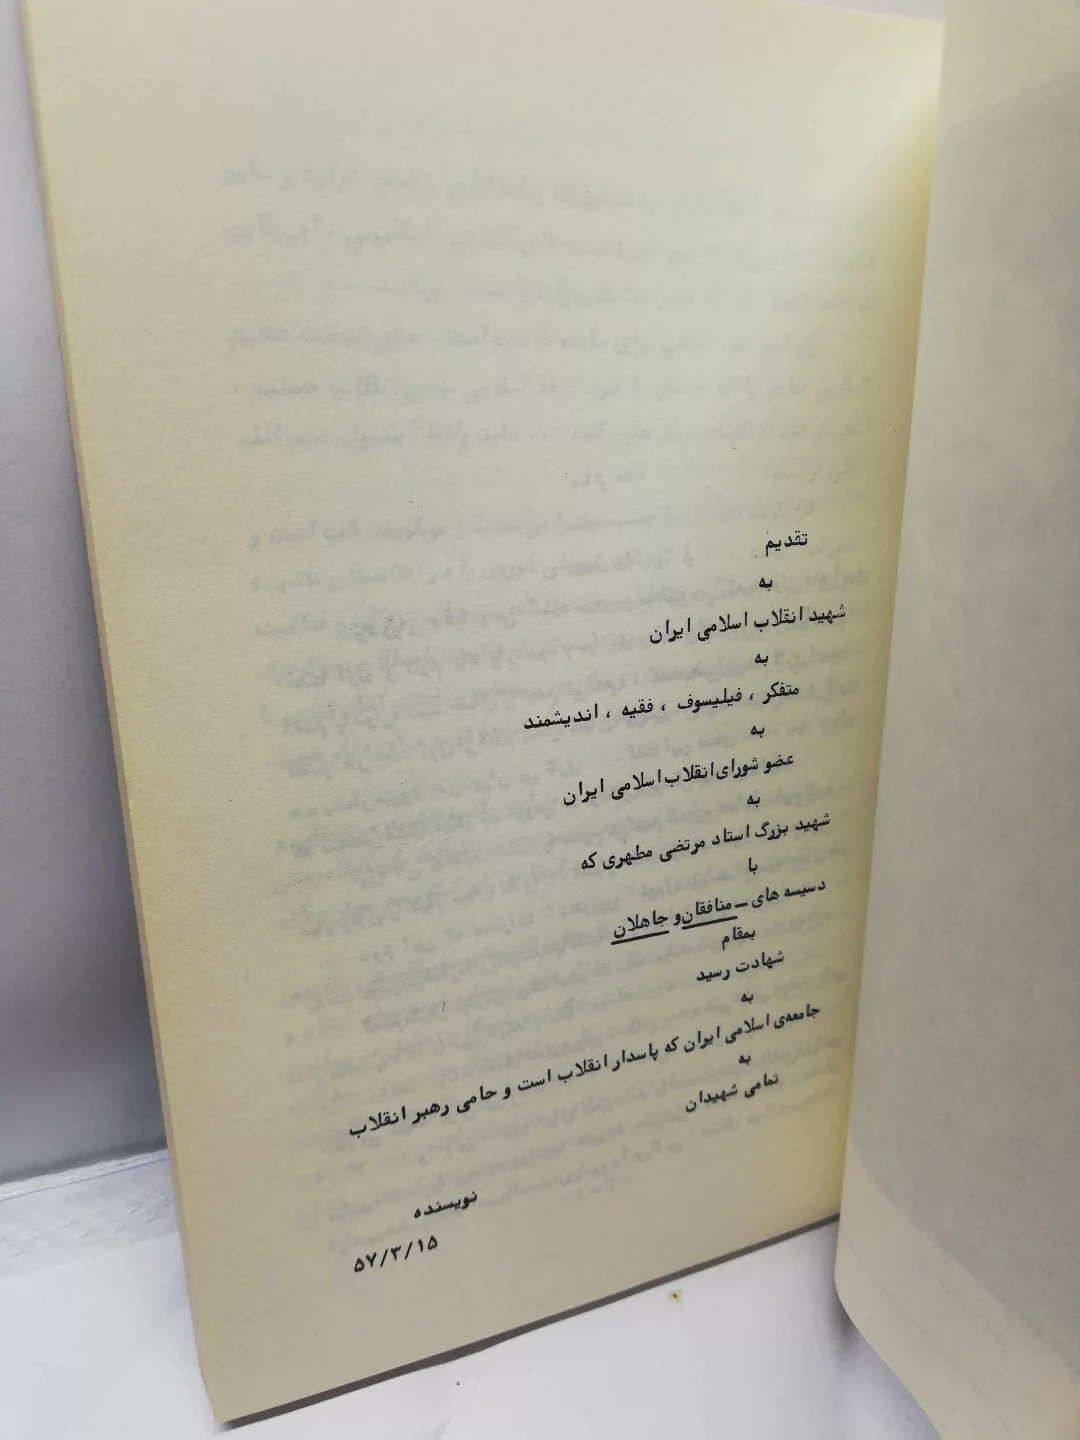 تقدیم
به
شهید انقلاب اسلامی ایران
به
متفکر ، فیلیسوف ، فقیه ، اندیشمند
به
عضو شورای انقلاب اسلامی ایران
به
شهید بزرگ استاد مرتضی مطهری که
با
دسیسه های ــ منافقان و جاهلان
بمقام
شهادت رسید
به
جامعه‌ی اسلامی ایران که پاسدار انقلاب است و حامی رهبر انقلاب
به
تمامی شهیدان
نویسنده
۵۷/۳/۱۵